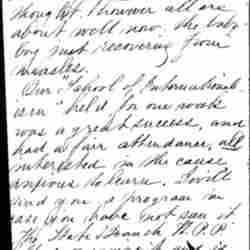 thought. However all are
about well now. the baby
boy just recovering from
measles.
Our "School of International-
ism" held for one week
was a great success, and
had a fair attendance, all
interested in the cause
anxious to learn. I will
send you a program in
case you have not seen it.
The State Branch N.P.P.